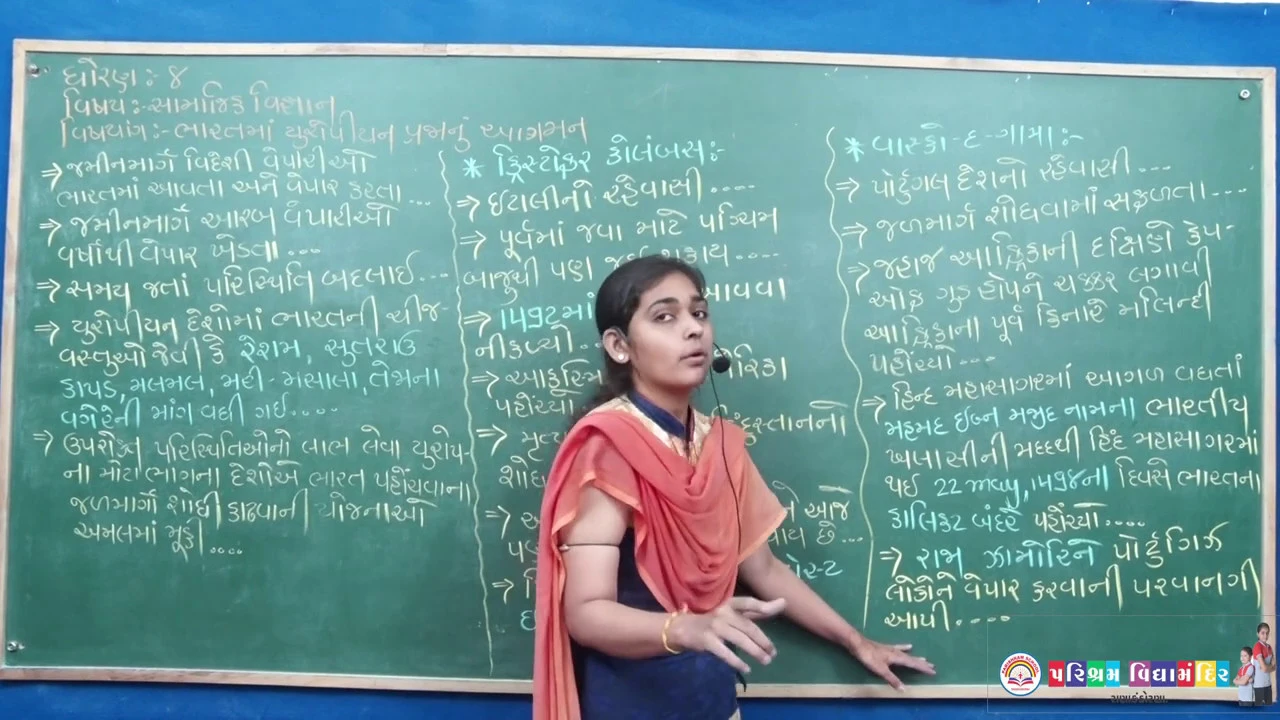 ધોરણ:- ૪
વિષય:- સામાજિક વિજ્ઞાન
વિષયાંગ:- ભારતમાં યુરોપીયન પ્રજાનું આગમન
⇒ જમીનમાર્ગે વિદેશી વેપારીઓ
ભારતમાં આવતા અને વેપાર કરતા...
⇒ જમીનમાર્ગે આરબ વેપારીઓ
વર્ષોથી વેપાર ખેડતા....
⇒ સમય જતાં પરિસ્થિતિ બદલાઈ....
⇒ યુરોપીયન દેશોમાં ભારતની ચીજ-
વસ્તુઓ જેવી કે રેશમ, સુતરાઉ
કાપડ, મલમલ, મરી-મસાલા, તેજાના
વગેરેની માંગ વધી ગઈ....
⇒ ઉપરોક્ત પરિસ્થિતિઓનો લાભ લેવા યુરોપ-
ના મોટા ભાગના દેશોએ ભારત પહોંચવાના
જળમાર્ગો શોધી કાઢવાની યોજનાઓ
અમલમાં મૂકી....
* ક્રિસ્ટોફર કોલંબસ:-
⇒ ઈટાલીનો રહેવાસી....
⇒ પૂર્વમાં જવા માટે પશ્ચિમ
બાજુથી પણ
⇒ ૧૪૯૨માં આવવા
નીકળ્યો..
⇒
પહોંચ્યો
⇒
⇒ આજે
છે...
⇒
* વાસ્કો-દ-ગામા:-
⇒ પોર્ટુગલ દેશનો રહેવાસી...
⇒ જળમાર્ગ શોધવામાં સફળતા....
⇒ જહાજ આફ્રિકાની દક્ષિણે કેપ-
ઓફ ગુડ હોપને ચક્કર લગાવી
આફ્રિકાના પૂર્વ કિનારે માલિન્દી
પહોંચ્યા...
⇒ હિન્દ મહાસાગરમાં આગળ વધતાં
મહમદ ઈબ્ન મજીદ નામના ભારતીય
ખલાસીની મદદથી હિંદ મહાસાગરમાં
થઈ 22 may, ૧૪૯૮ના દિવસે ભારતના
કાલિકટ બંદરે પહોંચ્યો....
⇒ રાજા ઝામોરિને પોર્ટુગિઝ
લોકોને વેપાર કરવાની પરવાનગી
આપી....
પરિશ્રમ વિદ્યામંદિર